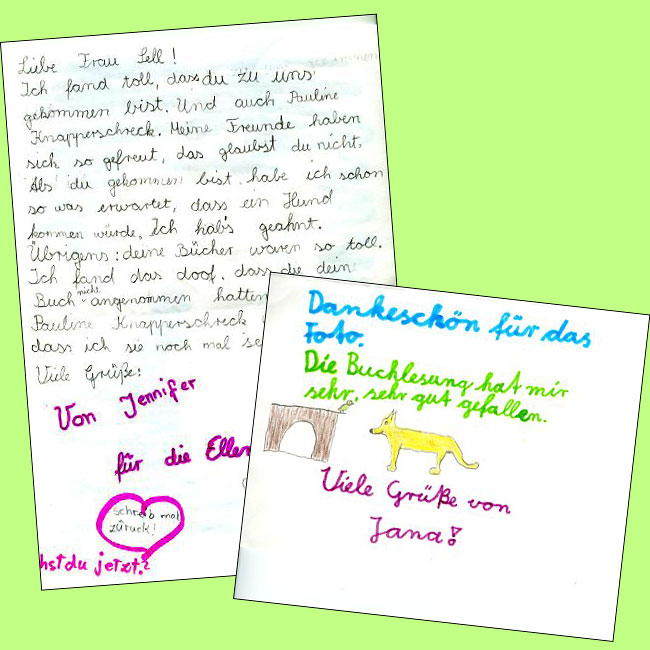 Liebe Frau Sell!
Ich fand toll, dass du zu uns
gekommen bist. Und auch Pauline
Knapperschreck. Meine Freunde haben
sich so gefreut, das glaubst du nicht.
Als du gekommen bist habe ich schon
so was erwartet, dass ein Hund
kommen würde. Ich hab's geahnt.
Übrigens: deine Bücher waren so toll.
Ich fand das doof, dass die dein
Buch nicht angenommen hatten
Pauline Knapperschreck
dass ich sie noch mal se
Viele Grüße:
Von Jennifer
für die Ellen
schreib mal
zurück!
hst du jetzt?
Dankeschön für das
Foto.
Die Buchlesung hat mir
sehr, sehr gut gefallen.
Viele Grüße von
Jana!